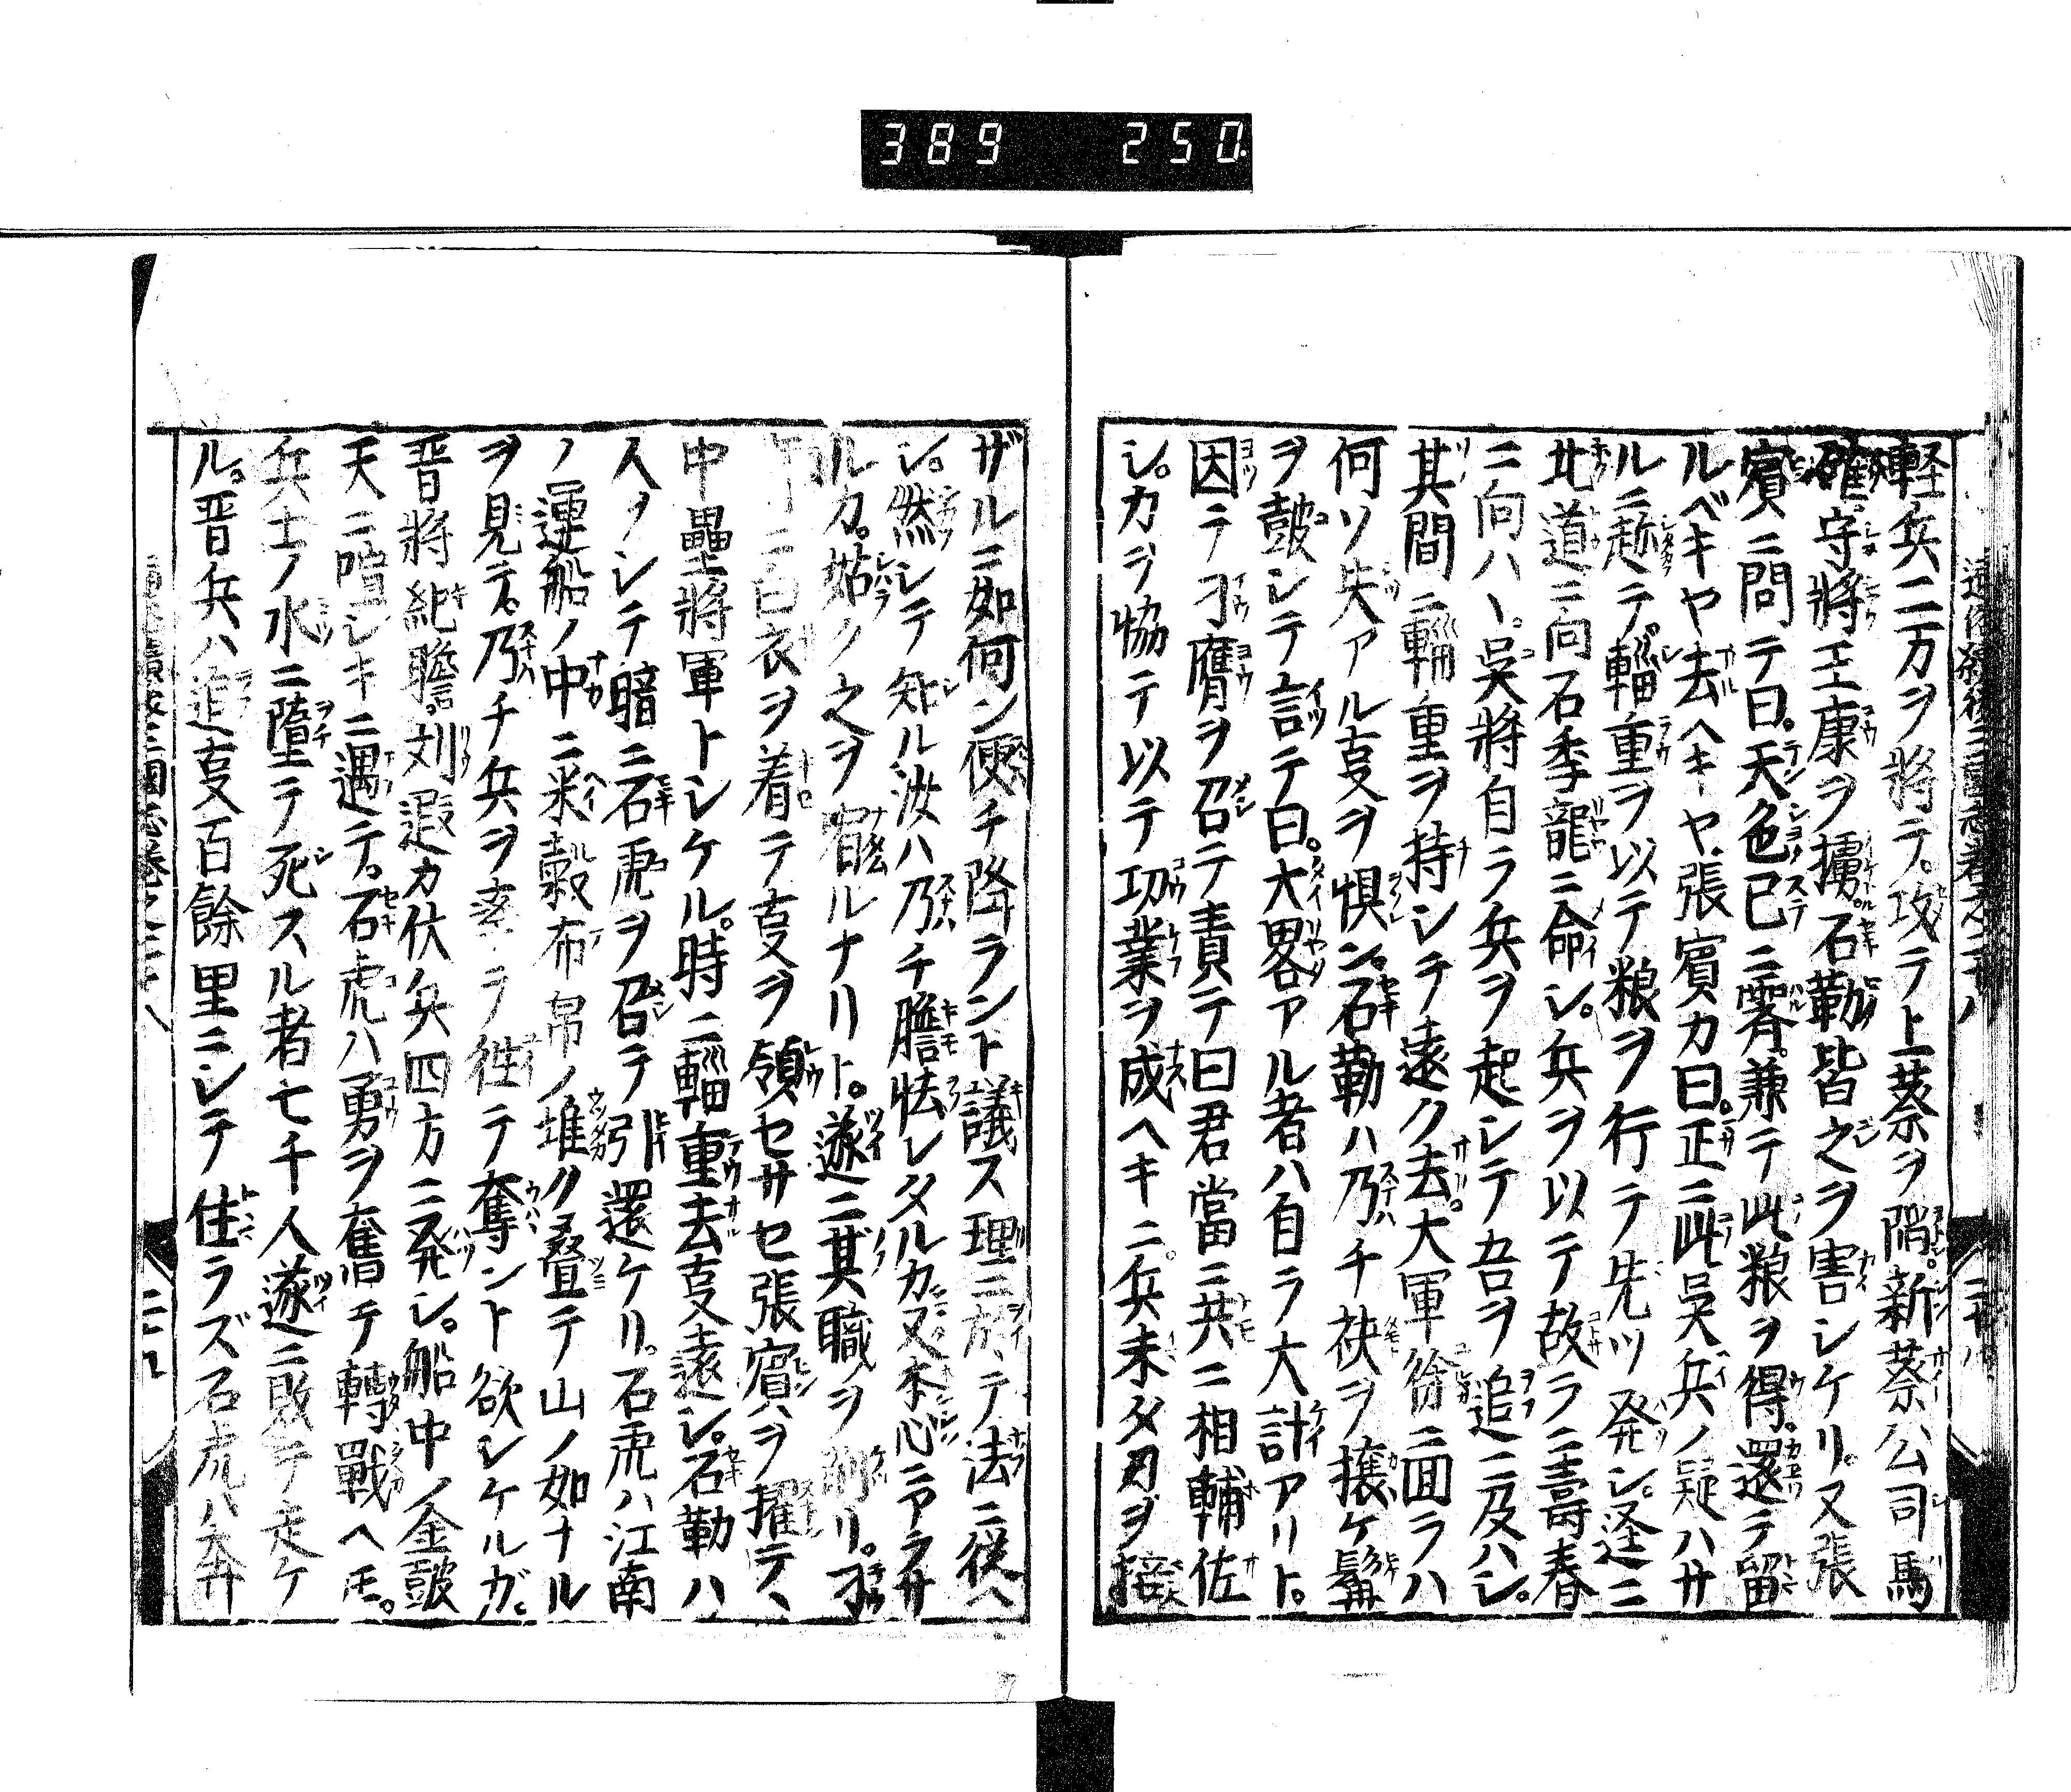 389 250
軽兵二万ヲ將テ。攻テト上蔡ヲ陥。新蔡公司馬
確。守將王康ヲ擄。石勒皆之ヲ害シケリ。又張
賓ニ問テ曰。天色已ニ霽。兼テ此粮ヲ得。還テ留
ルベキヤ去ヘキヤ。張賓カ曰。正ニ此吴兵ノ疑ハサ
ルニ趂テ。輜重ヲ以テ粮ヲ行テ先ツ発シ。逕ニ
北道ニ向石季龍ニ命シ。兵ヲ以テ故ラニ壽春
ニ向ハヽ。吴將自ラ兵ヲ起シテ吾ヲ追ニ及ハシ。
其間ニ輜重ヲ持シテ遠ク去。大軍徐ニ囬ラハ
何ソ失アル㕝ヲ惧ン。石勒ハ乃チ袂ヲ攘ケ髯
ヲ皷シテ言テ曰。大畧アル者ハ自ラ大計アリト。
因テ刁膺ヲ召テ責テ曰君當ニ共ニ相輔佐
シ。力ヲ恊テ以テ功業ヲ成ヘキニ。兵未タ刃ヲ接
ザルニ如何ン便チ降ラント議ス理ニ於テ法ニ從ヘ
シ。然シテ知ル汝ハ乃チ膽怯レタルカ又本心ニアラサ
ルカ。姑ク之ヲ宥ルナリト。遂ニ其職ヲ削リ。刁
ニ白衣ヲ着テ㕝ヲ領セサセ張賓ヲ擢テ、
中壘將軍トシケル。時ニ輜重去㕝遠シ。石勒ハ
人ヲシテ暗ニ石虎ヲ召テ引還ケリ。石虎ハ江南
ノ運船ノ中ニ米穀布帛ノ堆ク疊テ山ノ如ナル
ヲ見テ。乃チ兵ヲ率ラ徃テ奪ント欲シケルガ。
晋將紀瞻。刘遐カ伏兵四方ニ発シ。船中ノ金皷
天ニ喧シキニ遇テ。石虎ハ勇ヲ奮チ轉戰ヘ𪜈。
兵士ノ水ニ墮テ死スル者七千人遂ニ敗テ走ケ
ル。晋兵ハ追㕝百餘里ニシテ住ラズ石虎ハ奔